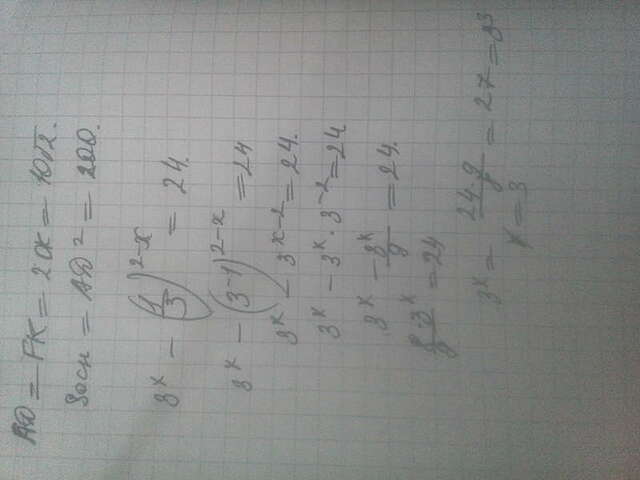 AD = PK = 2OK = 10√2.
Sосн = AD² = 200.
3^x - (1/3)^(2-x) = 24.
3^x - (3^-1)^(2-x) = 24
3^x - 3^(x-2) = 24.
3^x - 3^x · 3^-2 = 24
3^x - 3^x/9 = 24.
8·3^x/9 = 24
3^x = 24·9/8 = 27 = 3^3
x = 3